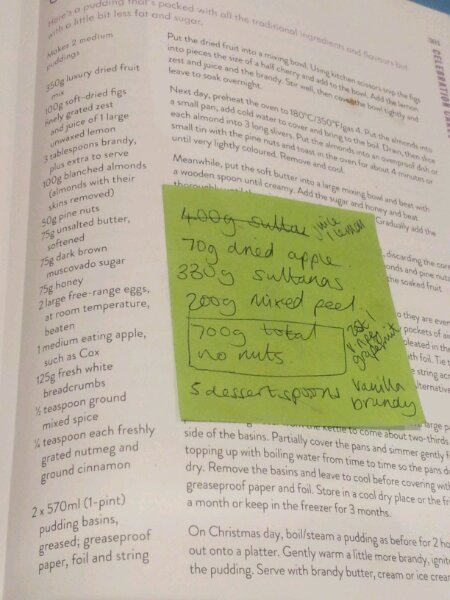 Here's a pudding that's packed with all the traditional ingredients and flavours but
with a little bit less fat and sugar.
Makes 2 medium
puddings
350g luxury dried fruit
mix
100g soft-dried figs
finely grated zest
and juice of 1 large
unwaxed lemon
3 tablespoons brandy,
plus extra to serve
100g blanched almonds
(almonds with their
skins removed)
50g pine nuts
75g unsalted butter,
softened
75g dark brown
muscovado sugar
75g honey
2 large free-range eggs,
at room temperature,
beaten
1 medium eating apple,
such as Cox
125g fresh white
breadcrumbs
½ teaspoon ground
mixed spice
¼ teaspoon each freshly
grated nutmeg and
ground cinnamon
2 x 570ml (1-pint)
pudding basins,
greased; greaseproof
paper, foil and string
Put the dried fruit into a mixing bowl. Using kitchen scissors snip the figs
into pieces the size of a half cherry and add to the bowl. Add the lemon
zest and juice and the brandy. Stir well, then cover the bowl tightly and
leave to soak overnight.
Next day, preheat the oven to 180°C/350°F/gas 4. Put the almonds into
a small pan, add cold water to cover and bring to the boil. Drain, then slice
each almond into 3 long slivers. Put the almonds into an ovenproof dish or
small tin with the pine nuts and toast in the oven for about 4 minutes or
until very lightly coloured. Remove and cool.
Meanwhile, put the soft butter into a large mixing bowl and beat with
a wooden spoon until creamy. Add the sugar and honey and beat
thoroughly until Gradually add the
400g sultas juice
1 lemon
70g dried apple
330g sultanas
200g mixed peel
700g total
no nuts.
zest 1
grapefruit
5 dessertspoons vanilla
brandy
, discarding the core
onds and pine nuts
the soaked fruit
o they are even
pockets of air
pleated in the
foil. Tie
string acr
lternative
the kettle to come about two-thirds
side of the basins. Partially cover the pans and simmer gently f
topping up with boiling water from time to time so the pans d
dry. Remove the basins and leave to cool before covering with
greaseproof paper and foil. Store in a cool dry place or the fri
a month or keep in the freezer for 3 months.
On Christmas day, boil/steam a pudding as before for 2 ho
out onto a platter. Gently warm a little more brandy, ignite
the pudding. Serve with brandy butter, cream or ice cream